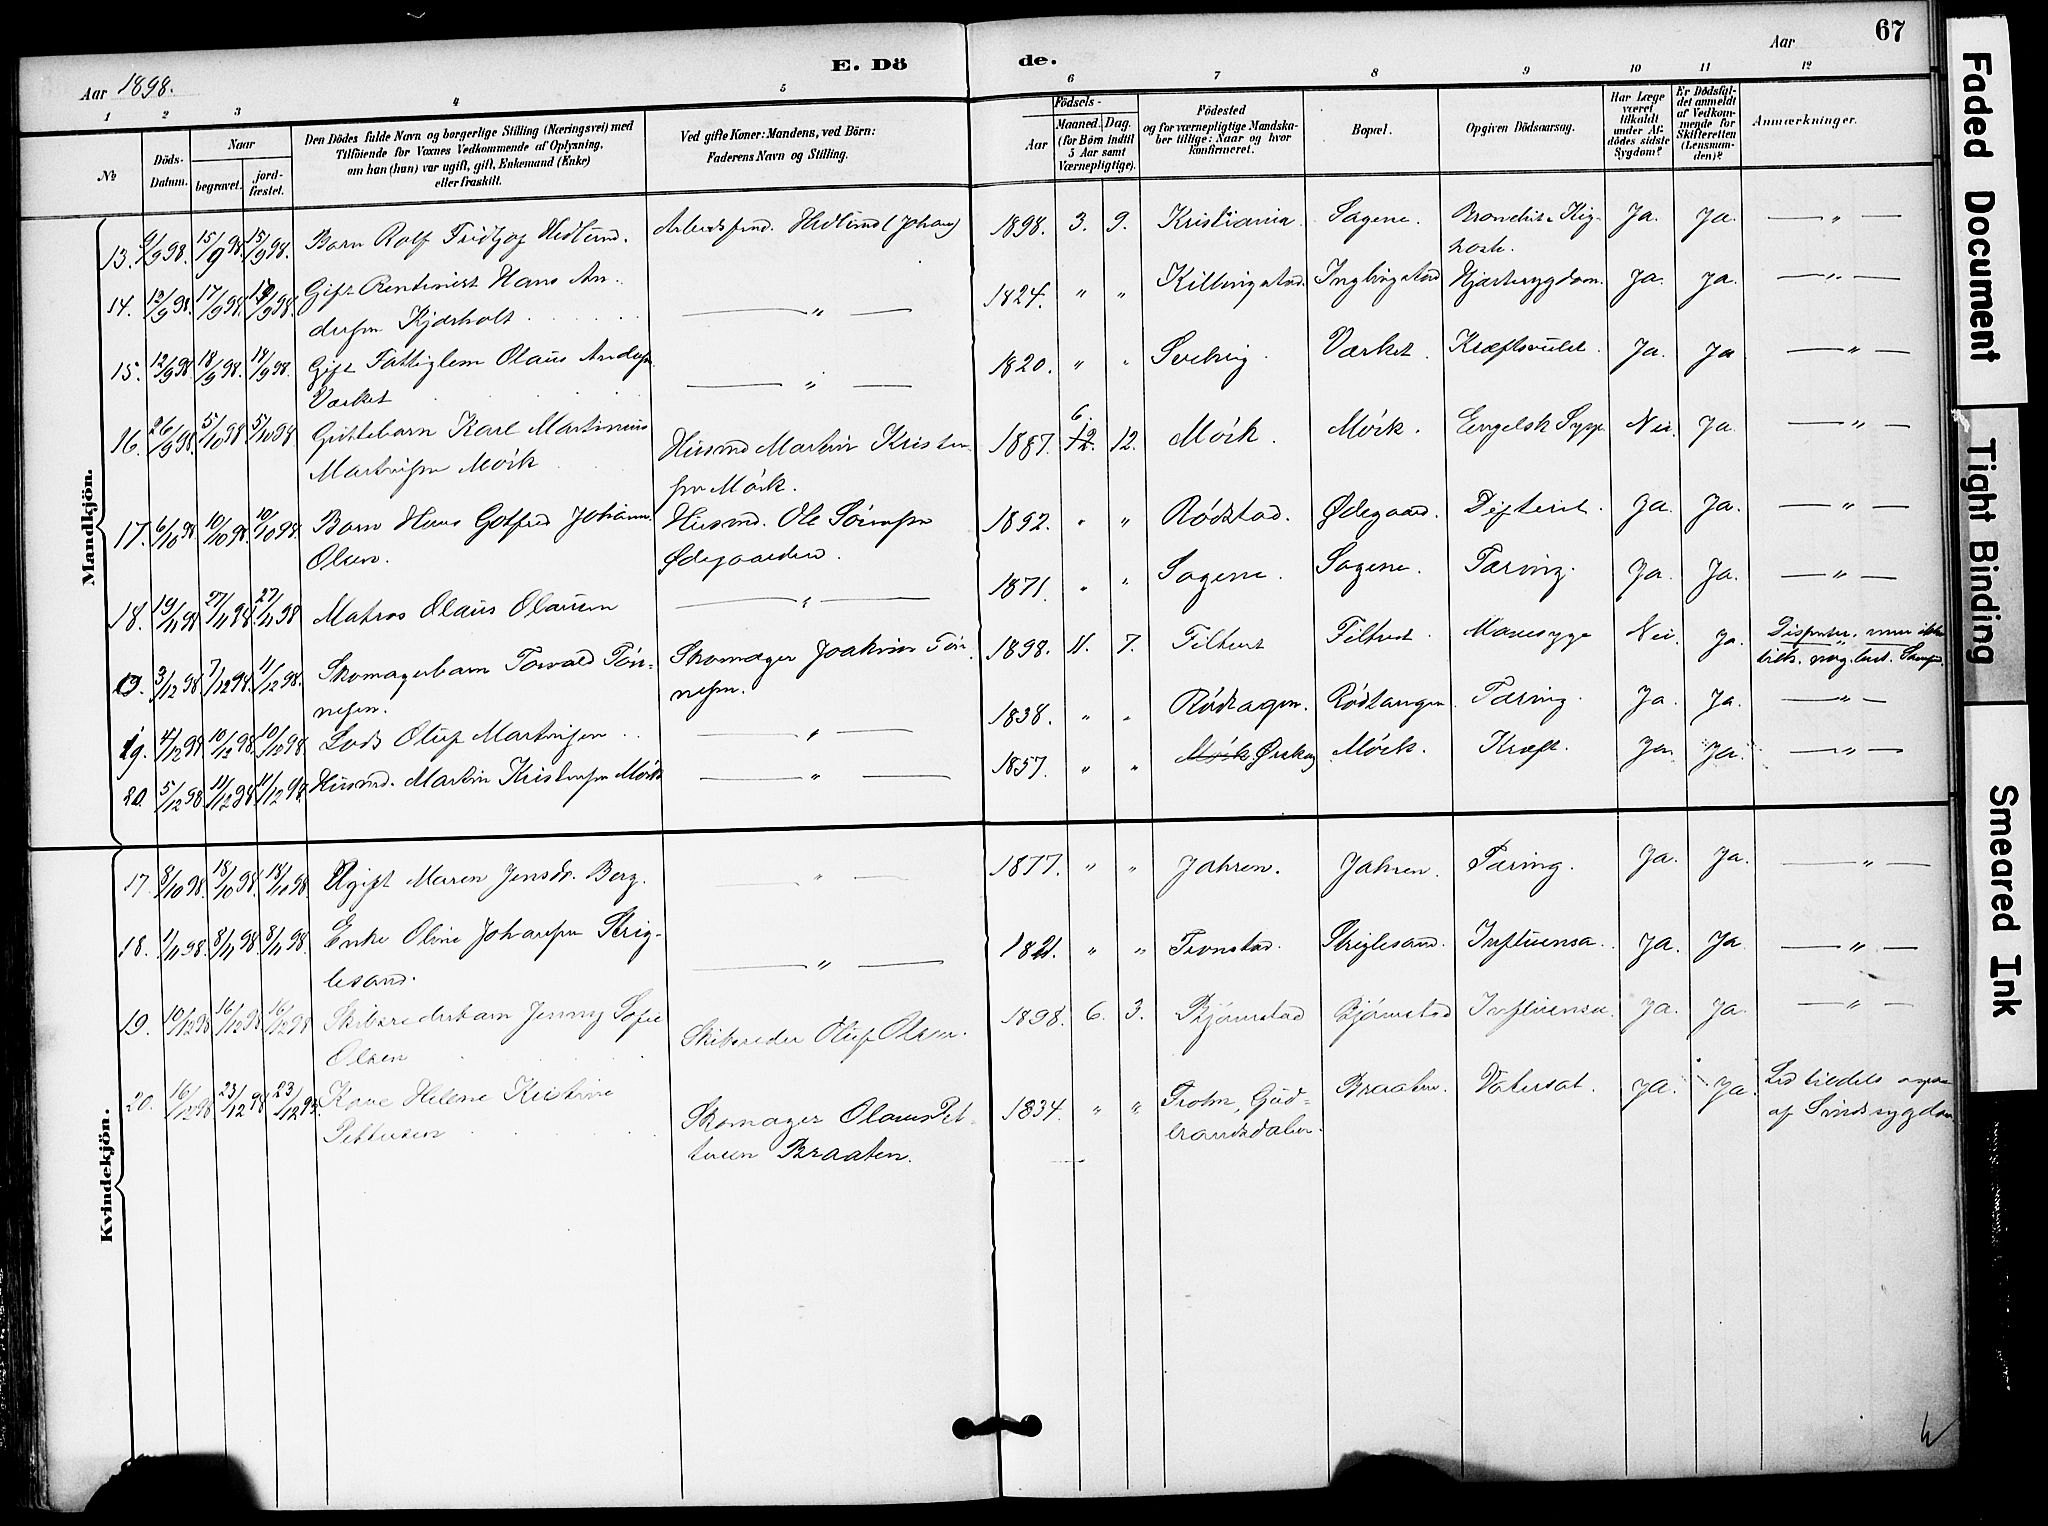 67
Aar 1898.
E. Dö de.
Aar
1 2 3 4 5 6 7 8 9 10 11 12
№
Döds-Datum.
Naar
begravet.
jord-fæstet.
Den Dödes fulde Navn og borgerlige Stilling (Næringsvei) med
Tilföiende for Voxnes Vedkommende af Oplysning,
om han (hun) var ugift, gift, Enkemand (Enke)
eller fraskilt.
Ved gifte Koner: Mandens, ved Börn:
Faderens Navn og Stilling.
Födsels-
Aar
Maaned. Dag.
(for Börn indtil
5 Aar samt
Værnepligtige).
Födested
og for værnepligtige Mandska-
ber tillige: Naar og hvor
konfirmeret.
Bopæl.
Opgiven Dödsaarsag.
Har Læge
været
tilkaldt
under Af-
dödes sidste
Sygdom?
Er Dödsfal-
det anmeldt
af Vedkom-
mende for
Skifteretten
(Lensman-
den)?
Anmærkninger.
Mandkjön.
13. 9/9 98. 15/9 98 15/9 98. Barn Rolf Fridtjof Hedlund. Hedlund (Johan) 1898. 3. 9. Kristiania. Sagene. Ja. Ja. — " —
14. 17/9 98 Gift Rentenist Hans An-
dersen Kjærholt — " — 1824. " " Killingstad Hjertesygdom. Ja. Ja. — " —
15. 12/9 98 18/9 98. 18/9 98. Gift Fattiglem Olaus Andersen
Værket — " — 1820. " " Selvig. Værket. Kræftsvulst. Ja. Ja — " —
16. 26/9 98. 5/10 98 5/10 98 Guttebarn Karl Martinius
Martinsen Mörk Husmd Martin Kristen-
sen Mörk. 1887. 6 12. 12. Mörk. Mörk. Engelsk Syge Nei. Ja. — " —
17. 6/10 98 10/10 98 10/10 98. Barn Hans Gotfred Johan
Olsen. Husmd. Ole Sörensen
Ødegaarden. 1892. " " Rödstad. Ødegaard. Difterit. Ja. Ja. — " —
18. 19/11 98 27/11 98 27/11 98 Matros Olaus Olausen — " — 1871. " " Sagene. Sagene. Tæring. Ja. Ja. — " —
19. 3/12 98 7/12 98 11/12 98. Skomagerbarn Torvald Tön-
nesen. Skomager Joakim Tön-
nesen. 1898. 11. 7. Filtvet Filtvet. Mavesyge Nei. Ja.
19. 4/12 98 10/12 98. 10/12 98 Lods Oluf Martinsen — " — 1838. " " Rödtangen. Rödtangen. Tæring. Ja. Ja. — " —
20. 5/12 98 11/12 98 11/12 98. Husmd. Martin Kristensen Mörk — " — 1857. " " Mörk Mörk. Kræft. Ja. Ja. — " —
Kvindekjön.
17. 8/10 98. 18/10 98. 18/10 98 Ugift Maren Jensdr. Berg. — " — 1877. " " Jahren. Jahren. Tæring. Ja. Ja. — " —
18. 1/11 98. 8/11 98 8/11 98 Enke Oline Johansen Strig-
lesand. — " — 1821. " " Tronstad. Striglesand. Influensa. Ja. Ja. — " —
19. 10/12 98 16/12 98 16/12 98 Skibsrederbarn Jenny Sofie
Olsen Skibsreder Oluf Olsen. 1898. 6. 3. Björnstad Björnstad Influensa. Ja. Ja. — " —
20. 16/12 98 23/12 98 23/12 98. Kone Helene Kristine
Pettersen Skomager Olaus Pet-
tersen Braaten. 1834. " " Gud-
brandsdalen. Braaten. Vatersot. Ja. Ja. Led tildels
af Sindssygdom
Faded Document
Tight Binding
Smeared Ink